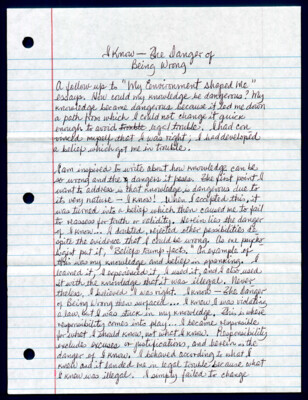 I Know - The Danger of
Being Wrong
A follow up to "My Environment shaped me"
essays. How could my knowledge be dangerous? My
knowledge became dangerous because it led me down
a path from which I could not change it quick
enough to avoid trouble legal trouble. I had con
vinced myself that I was right; I had developed
a belief which got me in trouble.
I am inspired to write about how knowledge can be
so wrong and the dangers it poses. The first point I
want to address is that knowledge is dangerous due to
its very nature - I know! When I accepted this, it
was turned into a belief which then caused me to fail
to reassess for truth or validity. Herein lies the danger
of I know... I doubted, rejected other possibilities de
spite the evidence that I could be wrong. As one
put it, "Beliefs trump facts." An example of
this was my knowledge and belief in spanking. I
learned it, I experienced it, I used it, and I also used
it with the knowledge that it was illegal. Never
theless, I believed I was right. I know - The danger
of Being Wrong then surfaced... I knew I was violating
a law, but I was stuck in my knowledge. This is where
responsibility comes into play... I became responsible
for what I should know, not what I knew. Responsibility
excludes excuses or justifications, and herein is the
danger of I know. I behaved according to what I
knew and it landed me in legal trouble because what
I knew was illegal. I simply failed to change